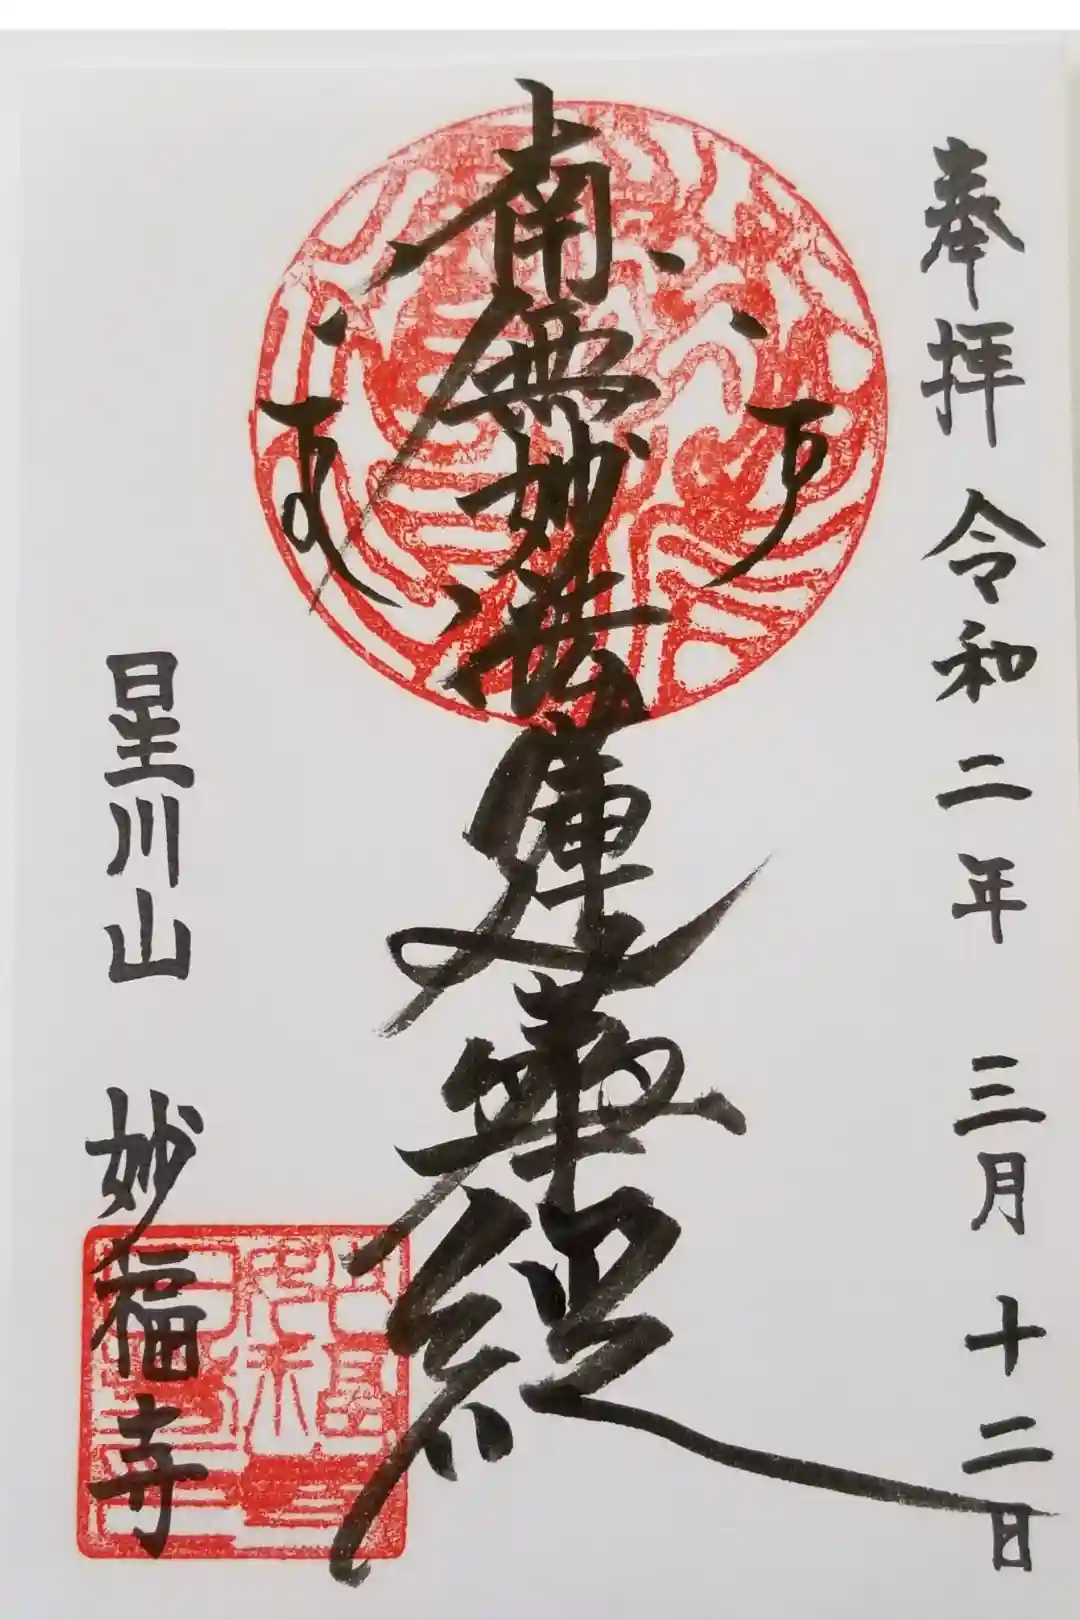 奉拝 令和二年 三月十二日
南無妙法蓮華経
星川山 妙福寺